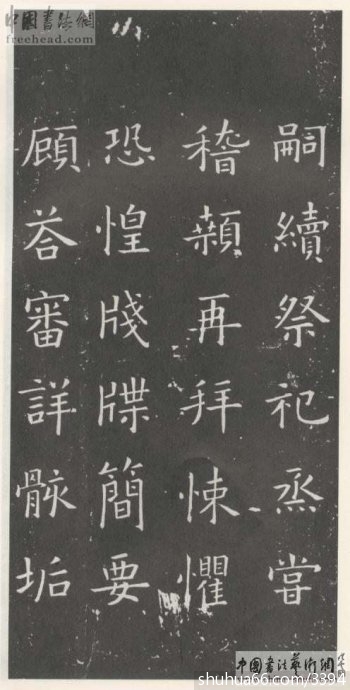 中國書法網
freehead.com
嗣續祭祀烝甞
稽顙再拜悚懼
恐惶牋牒簡要
顧荅審詳骸垢
中國書法藝術網
shuhua66.com/3394